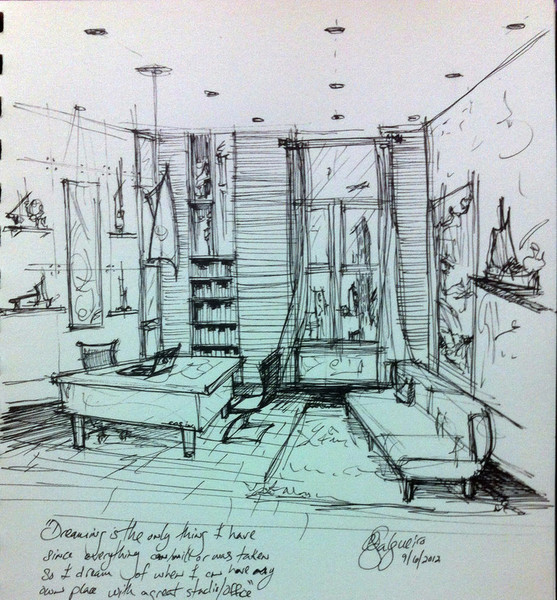 "Dreaming is the only thing I have
since everything or was taken
So I dream of when I can have my
own place with a great studio/office"